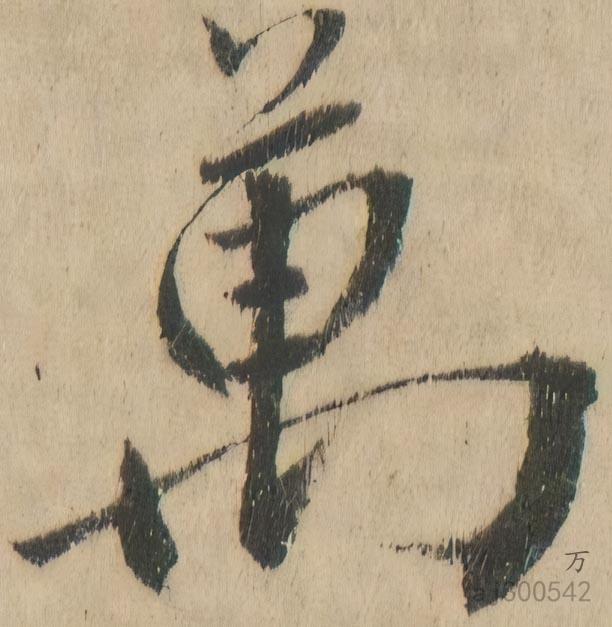 萬
万
aj300542